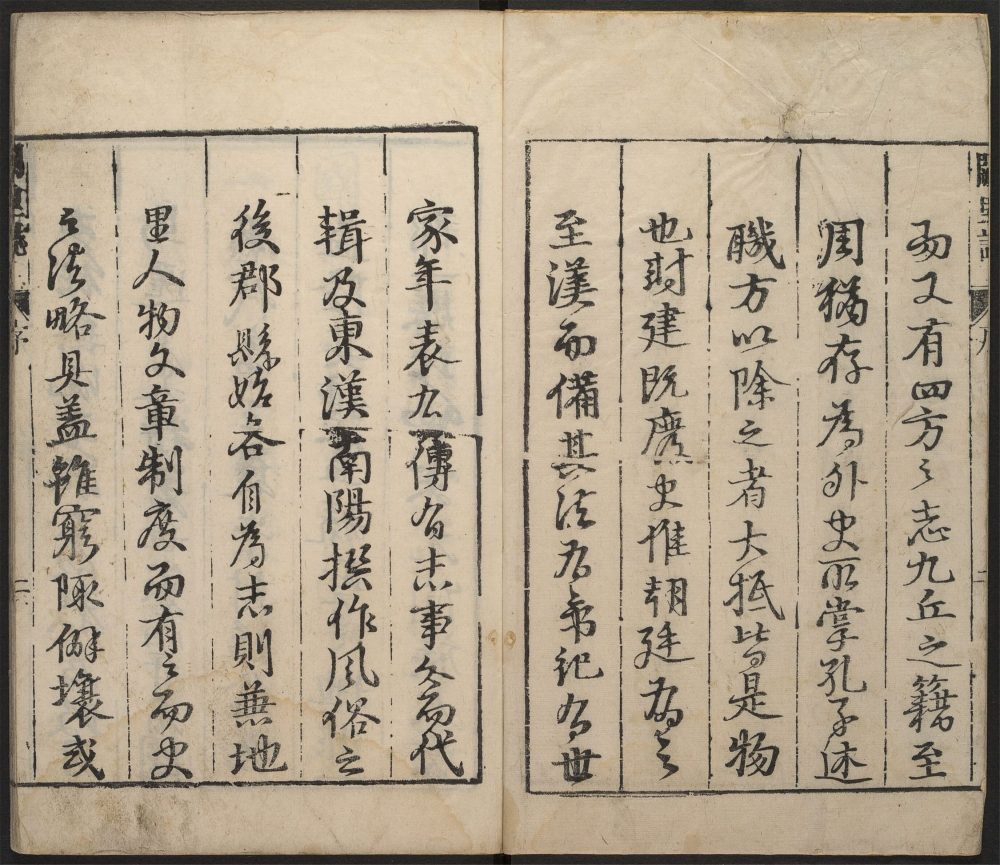 而又有四方之志九丘之籍至
周猶存為外史所掌孔子述
職方以除之者大抵皆是物
也封建既廢史惟朝廷為之
至漢而備其法有帝紀有世
家年表有傳有志事分而代
輯及東漢南陽撰作風俗之
後郡縣始各自為志則兼地
里人物文章制度而有之而史
之法略具蓋雖窮陬僻壤或
闕里誌 序 二